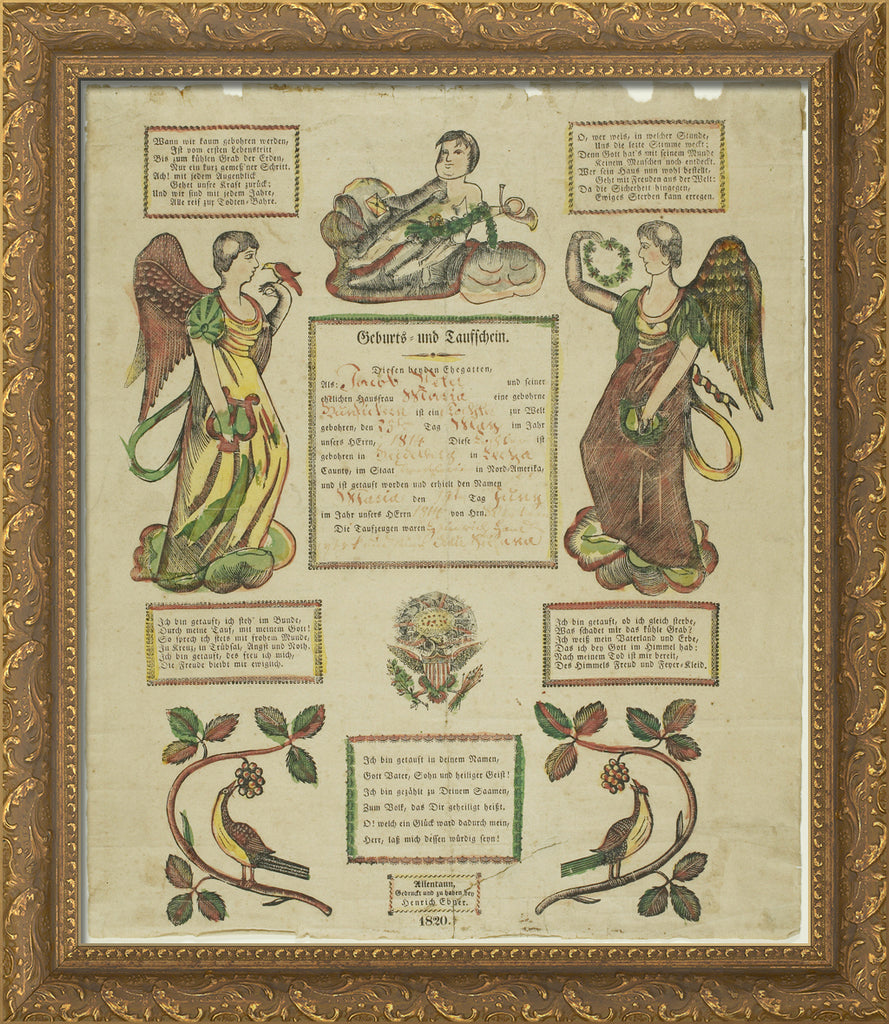 Wann wir kaum gebohren werden,
Ist vom ersten Lebenstritt
Bis zum kühlen Grab der Erden,
Nur ein kurz gemeß'ner Schritt.
Ach! mit jedem Augenblick
Gehet unsre Kraft zurück;
Und wir sind mit jedem Jahre,
Alle reif zur Todten-Bahre.
O, wer weis, in welcher Stunde,
Uns die letzte Stimme weckt;
Denn Gott hat's mit seinem Munde
Keinem Menschen noch entdeckt.
Wer sein Haus nun wohl bestellt,
Geht mit Freuden aus der Welt;
Da die Sicherheit hingegen,
Ewiges Sterben kann erregen.
Geburts- und Taufschein.
Diesen beyden Ehegatten,
Als: Jacob Peter und seiner
ehlichen Hausfrau Maria eine gebohrne
ist eine Tochter zur Welt
gebohren, den Tag May im Jahr
unsers HErrn, 1814 Diese Tochter ist
gebohren in Heidelberg in Lecha
Caunty, im Staat in Nord-Amerika,
und ist getauft worden und erhielt den Namen
Maria den Tag Juny
im Jahr unsers HErrn 1814 von Hrn.
Die Taufzeugen waren
Maria
Ich bin getauft, ich steh' im Bunde,
Durch meine Tauf, mit meinem Gott!
So sprech ich stets mit frohem Munde,
In Kreuz, in Trübsal, Angst und Noth.
Ich bin getauft, des freu ich mich,
Die Freude bleibt mir ewiglich.
Ich bin getauft, ob ich gleich sterbe,
Was schadet mir das kühle Grab?
Ich weiß mein Vaterland und Erbe,
Das ich bey Gott im Himmel hab:
Nach meinem Tod ist mir bereit,
Des Himmels Freud und Feyer-Kleid.
Ich bin getauft in deinem Namen,
Gott Vater, Sohn und heiliger Geist!
Ich bin gezählt zu Deinem Saamen,
Zum Volk, das Dir geheiligt heißt.
O! welch ein Glück ward dadurch mein,
Herr, laß mich dessen würdig seyn!
Allentaun,
Gedruckt und zu haben bey
Henrich Ebner.
1820.